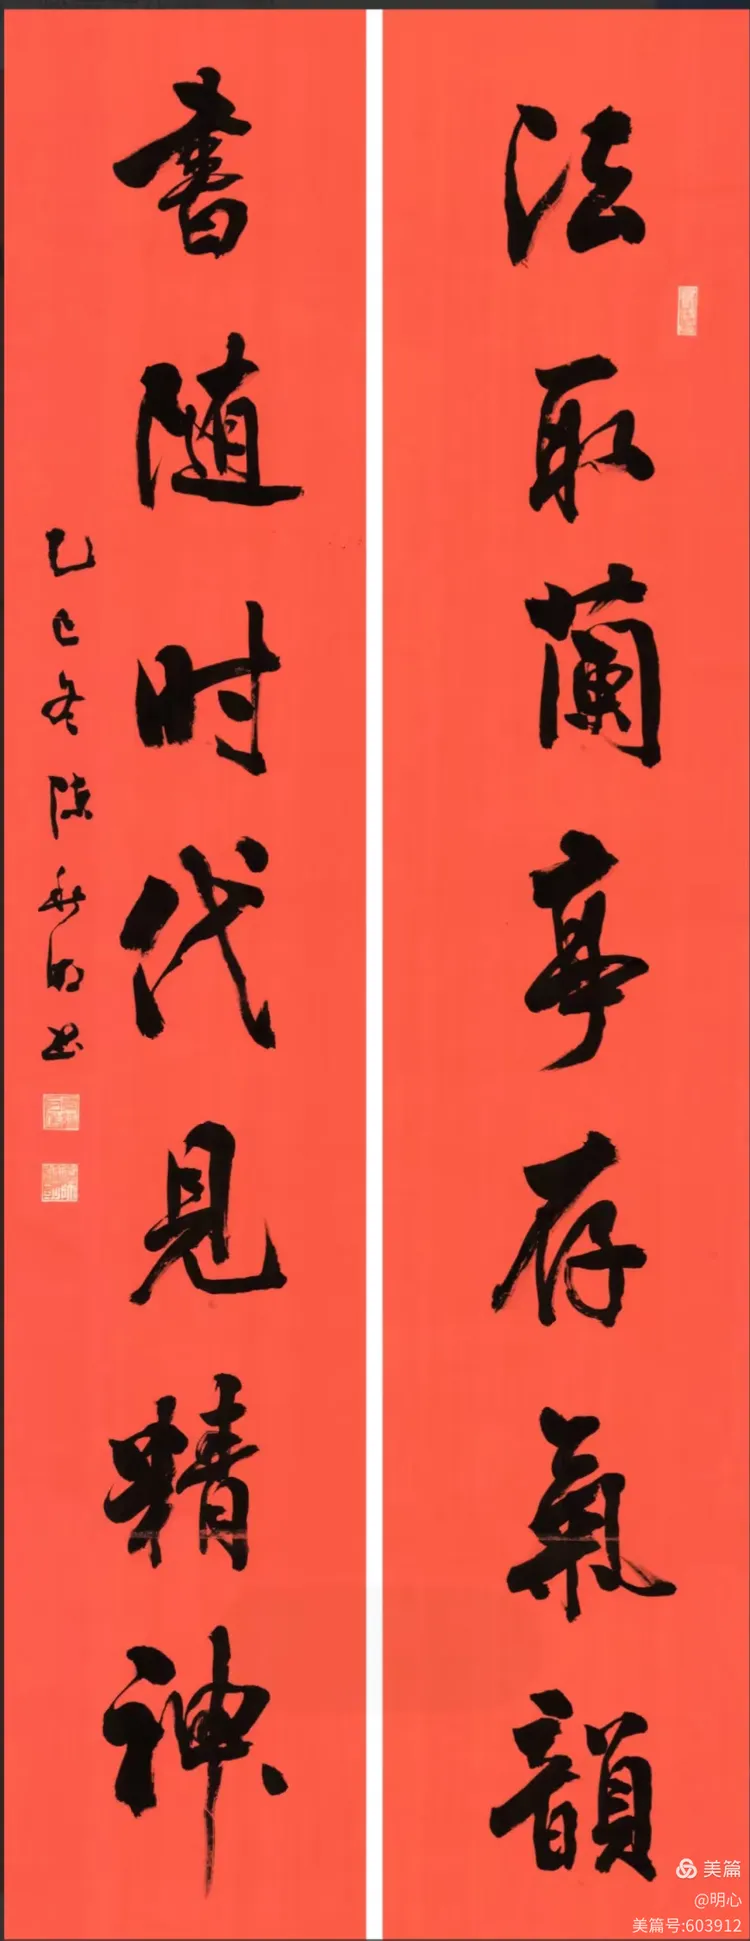 法取蘭亭存氣韻
書随时代見精神
乙巳冬陈秋明书
美篇
@明心
美篇号:603912